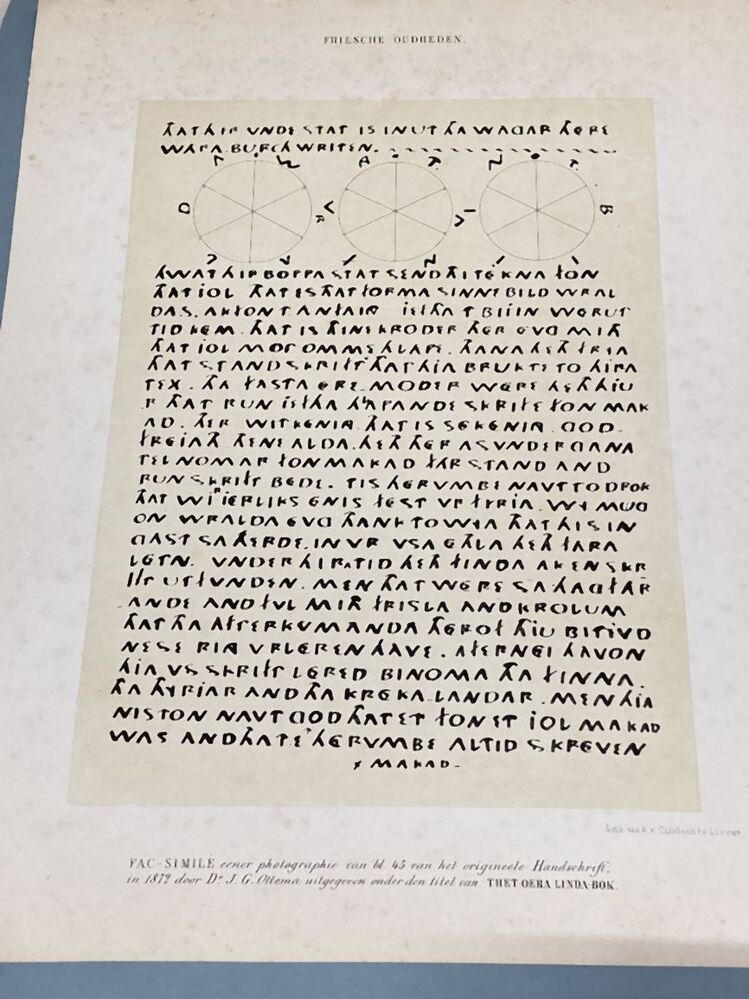 FRIESCHE OUDHEDEN.
THAT HIR UNDE STAT IS IN UT THA WAGAR THERE
WARA.BURCH WRITEN.
HWAT HIR BOPPA STAT SEND THI TEKNA FON
THAT IOL THAT IS THAT FORMA SINNEBILD WRAL
DAS. AK FON T ANFANG IEFTHA T BIJIN WERUT
TID KEM. THAT IS THENE KRODER THER EVG MITH
THAT IOL MOT OMMEHLAPE. THANA HETH FRIA
THAT STANDSKRIFT THAT HIA BRUKTE TO HIRA
TEX. THA FASTA ERE.MODER WERE HETH HIU
R THAT RUN IEFTHA HLAPANDE SKRIFT FON MAK
AD. THER WITKENING THAT IS SEKENING. GOD.
FREIATH THENE ALDA.HETH THER ASUNDERGANA
TELNOMAR FON MAKAD FAR STAND AND
RUNSKRIFT BEDE. TIS THERUMBE NAUT TO DROK
THAT WI R IERLIKS ENIS FEST UR FYRIA. WI MUG
ON WRALDA EVG THANK TO WIA THAT HI SIN
GAST SA HERDE.IN UR USA ETHLA HETH FARA
LETN. UNDER HIRA TID HETH FINDA AK EN SKR
IFT UTFUNDEN. MEN THAT WERE SA HAGFAR
ANDE AND FUL MITH FRISLA AND KROLUM
THAT THA AFTERKUMANDA THEROF THIU BITIUD
NESE RING URLEREN HAVE. AFTERNEI HAVON
HIA US SKRIFT LERED BINOMA THA FINNA.
THA THYRIAR AND THA KREKALANDAR. MEN HIA
NISTON NAUT GOD THAT ET FON ET IOL MAKAD
WAS AND THAT ET THERUMBE ALTID SKREVEN
MAKAD.
FAC-SIMILÉ eener photographie van bl. 45 van het origineele Handschrift,
in 1872 door Dr. J. G. Ottema uitgegeven onder den titel van THET OERA LINDA-BOK.